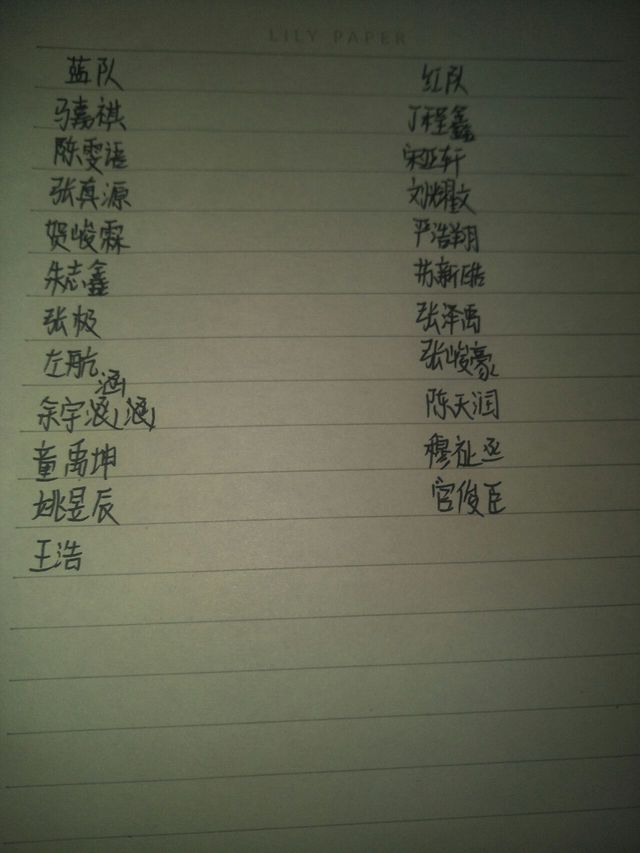 LILY PAPER
蓝队 红队
马嘉祺 丁程鑫
陈雯语 宋亚轩
张真源 刘耀文
贺峻霖 严浩翔
朱志鑫 苏新皓
张极 张泽禹
左航 张峻豪
涵
余宇涵(涵) 陈天润
童禹坤 穆祉丞
姚昱辰 官俊臣
王浩